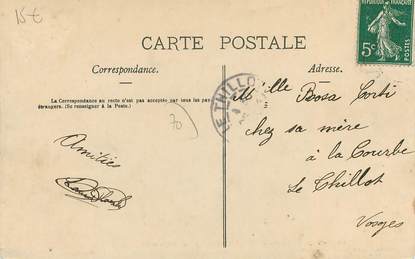 15€
REPUBLIQUE FRANÇAISE
5c
POSTES
CARTE POSTALE
Correspondance.
Adresse.
La Correspondance au recto n'est pas acceptée par tous les pays
étrangers. (Se renseigner à la Poste.)
LE THILLOT
70
Mlle Rosa Corti
chez sa mère
à la Courbe
Le Thillot
Vosges
Amitiés